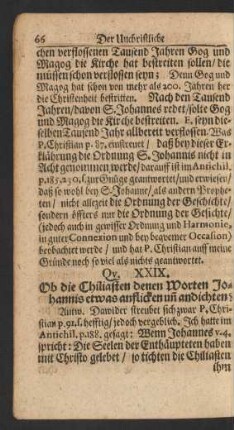 66 Der Unchristliche
chen verflossenen Tausend Jahren Gog und
Magog die Kirche hat bestreiten sollen/ die
müssen schon verflossen seyn; Denn Gog und
Magog hat schon von mehr als 200. Jahren her
die Christenheit bestritten. Nach den Tausend
Jahren/davon S. Johannes redet/solte Gog
und Magog die Kirche bestreiten. E. seyn die-
selben Tausend Jahr allbereit verflossen. Was
P. Christian p. 87. einstreuet / daß bey dieser Er-
klährung die Ordnung S. Johannis nicht in
Acht genommen werde/darauf ist im Antichil.
p. 187. zur Gnüge geantwortet/und erwiesen/
daß so wohl bey S. Johanne/ als andern Prophe-
ten/ nicht allezeit die Ordnung der Geschichte/
sondern öffters nur die Ordnung der Gesichte/
(jedoch auch in gewisser Ordnung und Harmonie,
in guter Connexion und bey bequemer Occasion)
beobachtet werde / und hat P. Christian auff meine
Gründe noch so viel als nichts geantwortet.
Qv. XXIX.
Ob die Chiliasten denen Worten Jo-
hannis etwas anflicken uñ andichten?
Antw. Dawider streubet sich zwar P. Chri-
stian p. 91. f. hefftig/ jedoch vergeblich. Ich hatte im
Antichil. p. 188. gesagt: Wenn Johannes v. 4.
spricht: Die Seelen der Enthäupteten haben
mit Christo gelebet / so tichten die Chiliasten
ihm